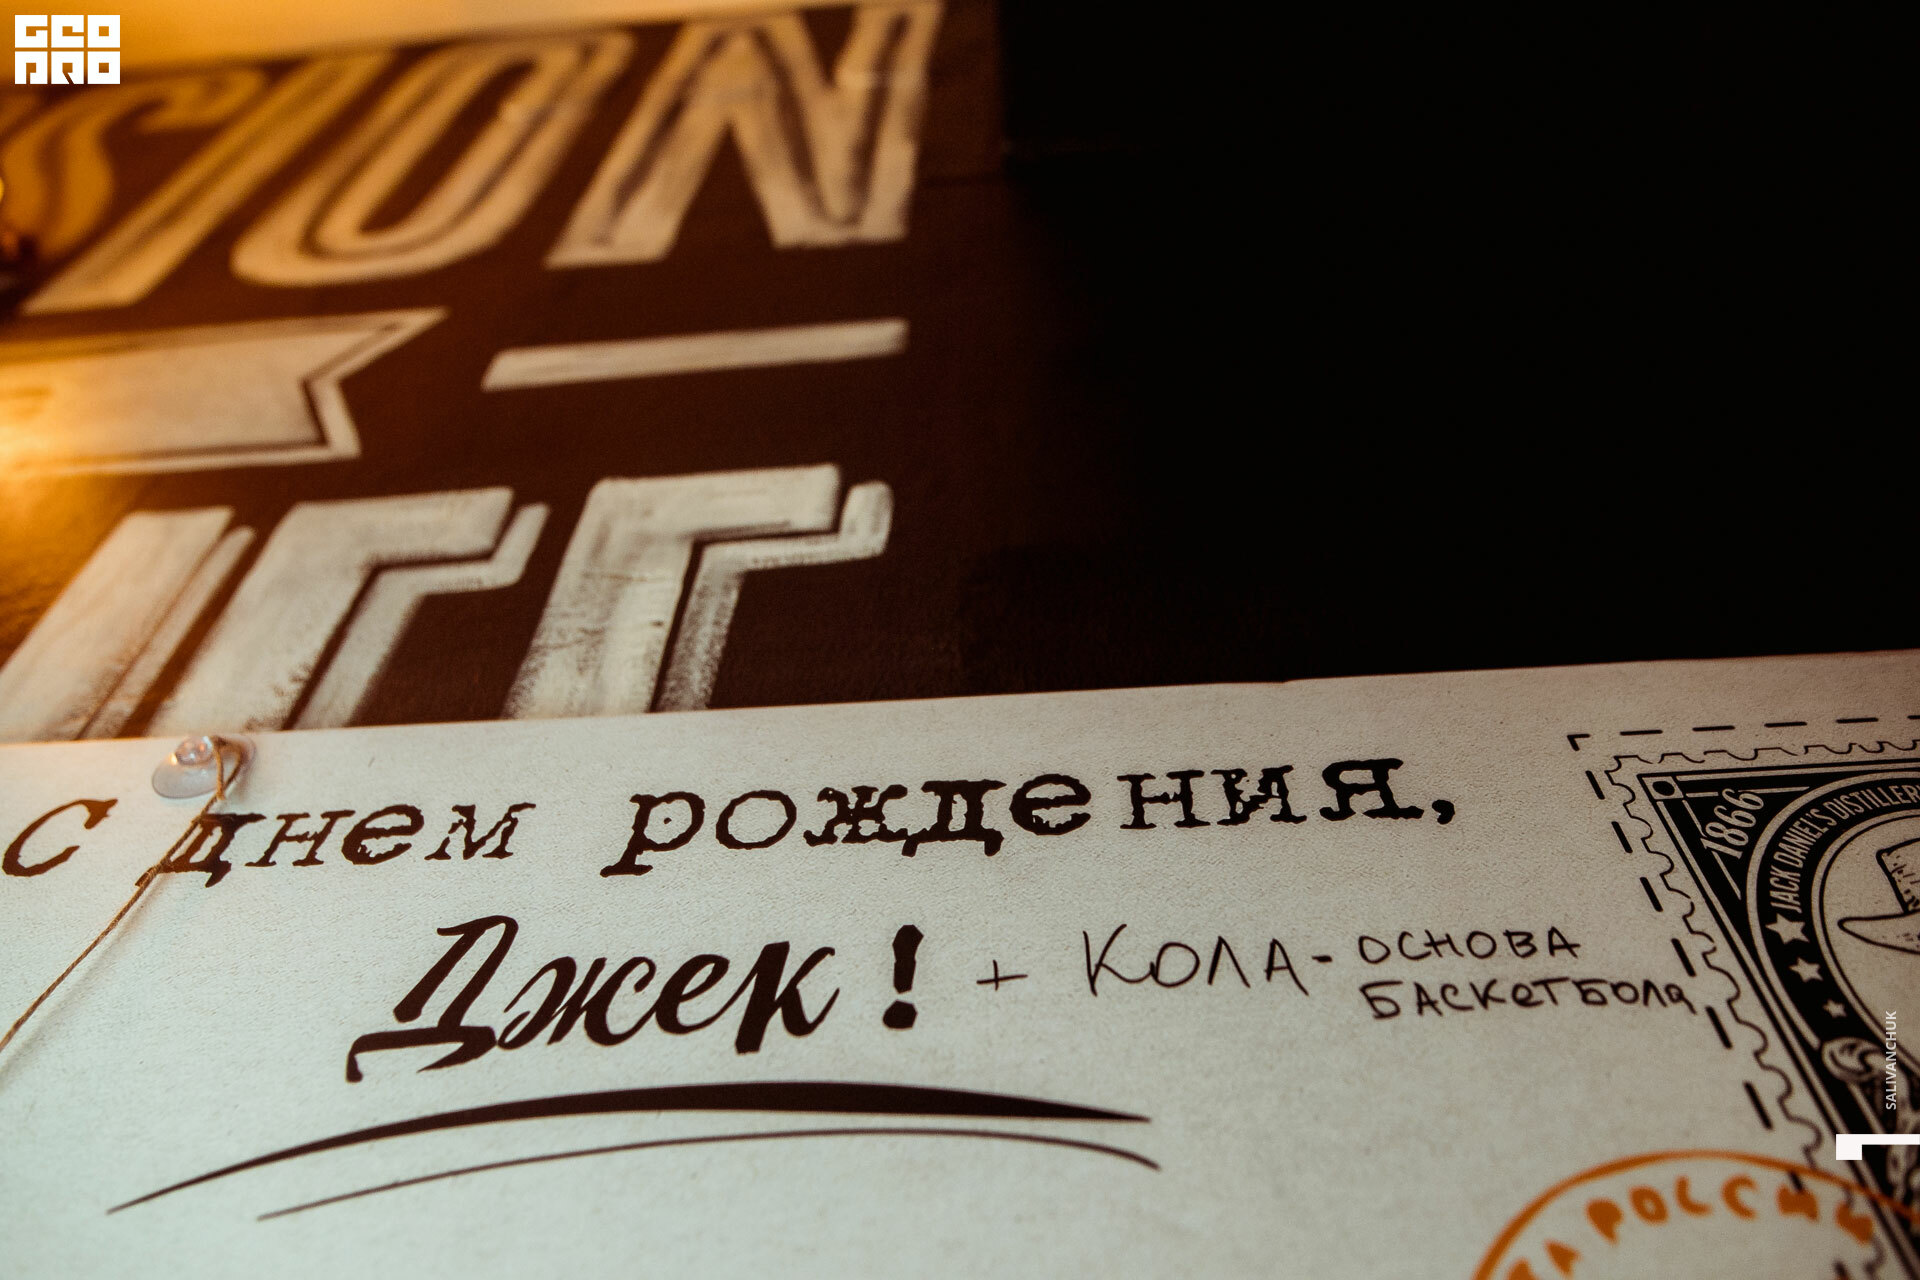 GEO
PRO
SION
С днем рождения,
Джек! + КОЛА - ОСНОВА
БАСКЕТБОЛА
1866
JACK DANIEL'S DISTILLERY
SALIVANCHUK
ТА РОССИИ